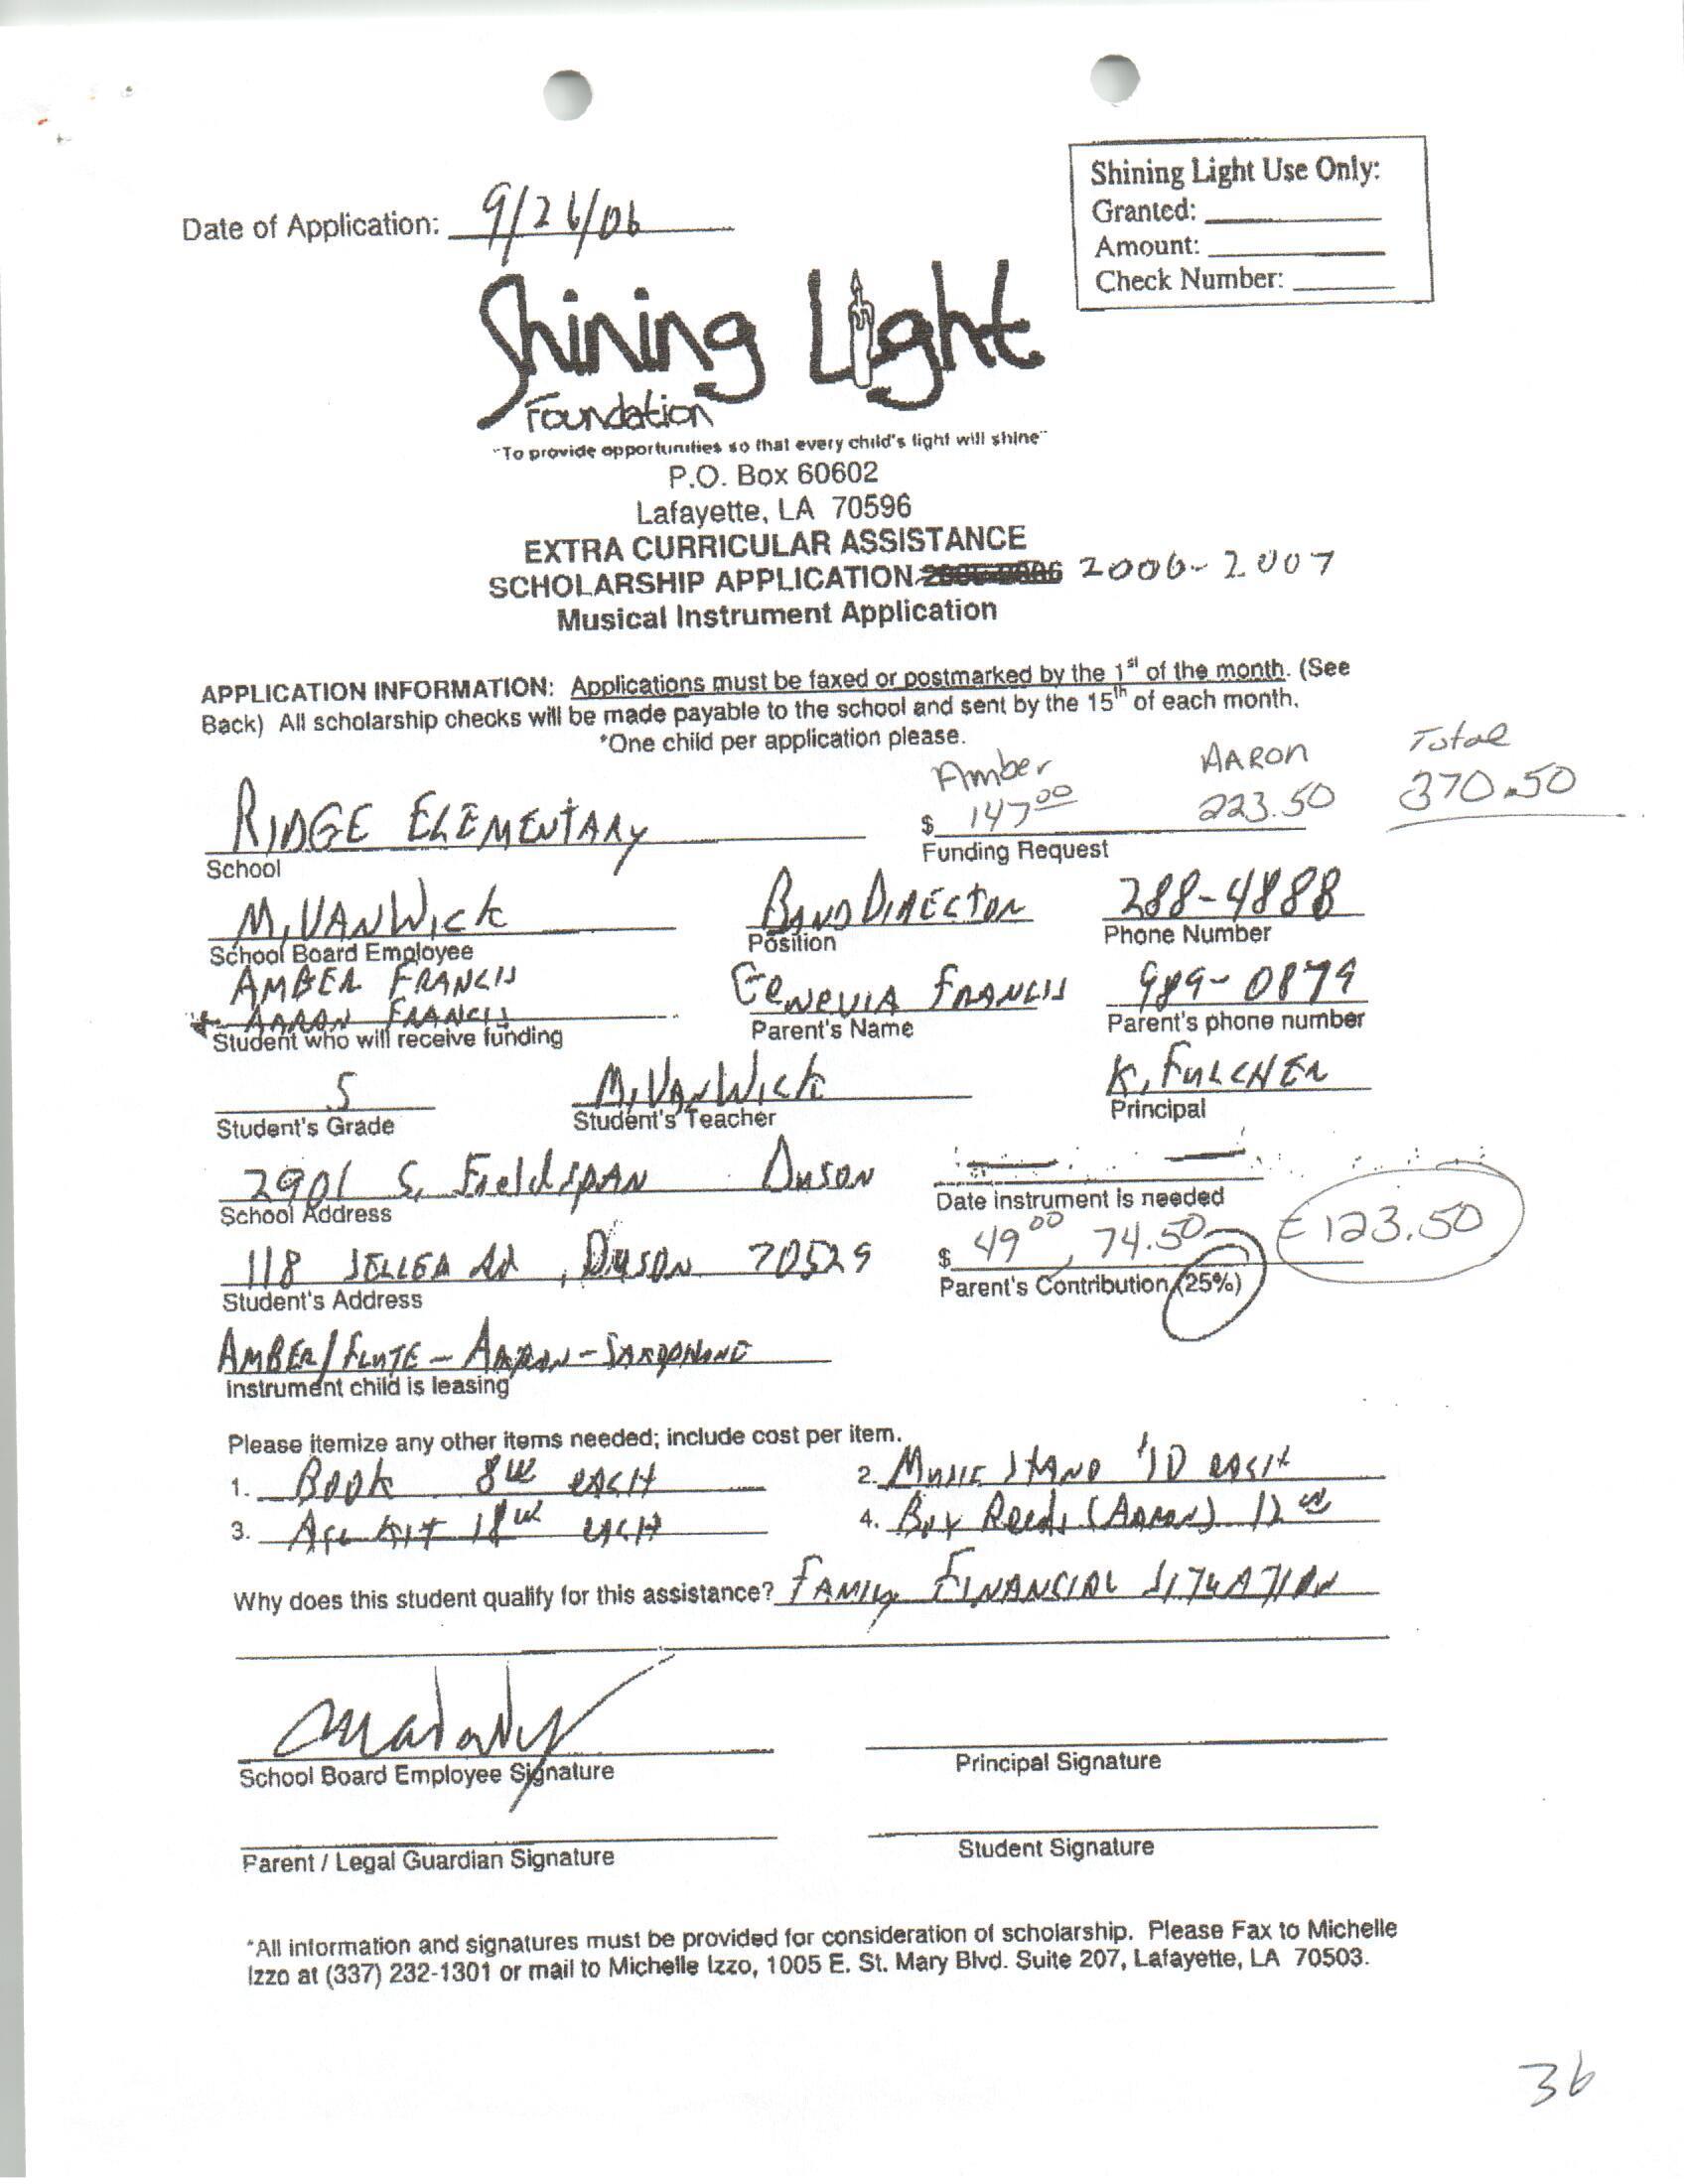 Shining Light Use Only:
Granted:
Amount:
Check Number:
Date of Application: 9/26/06
Shining Light
Foundation
"To provide opportunities so that every child's light will shine"
P.O. Box 60602
Lafayette, LA 70596
EXTRA CURRICULAR ASSISTANCE
SCHOLARSHIP APPLICATION 2006-2007
Musical Instrument Application
APPLICATION INFORMATION: Applications must be faxed or postmarked by the 1st of the month. (See
Back) All scholarship checks will be made payable to the school and sent by the 15th of each month.
*One child per application please.
Amber AARON Total
RIDGE ELEMENTARY $ 147.00 223.50 370.50
School Funding Request
M. VANWICK BAND DIRECTOR 288-4888
School Board Employee Position Phone Number
AMBER FRANCIS
* AARON FRANCIS GENEVIA FRANCIS 989-0879
Student who will receive funding Parent's Name Parent's phone number
5 M. VANWICK K. FULCHER
Student's Grade Student's Teacher Principal
2901 S. FieldSPAN DUSON
School Address Date instrument is needed
118 Rd, DUSON 70529 $ 49.00, 74.50 123.50
Student's Address Parent's Contribution (25%)
AMBER/FLUTE - AARON - SAXOPHONE
Instrument child is leasing
Please itemize any other items needed; include cost per item.
1. BOOK 8 EACH 2. MUSIC STAND $10 EACH
3. KIT 18 EACH 4. Box Reeds (AARON) 12
Why does this student qualify for this assistance? FAMILY FINANCIAL SITUATION
School Board Employee Signature Principal Signature
Parent / Legal Guardian Signature Student Signature
*All information and signatures must be provided for consideration of scholarship. Please Fax to Michelle
Izzo at (337) 232-1301 or mail to Michelle Izzo, 1005 E. St. Mary Blvd. Suite 207, Lafayette, LA 70503.
36